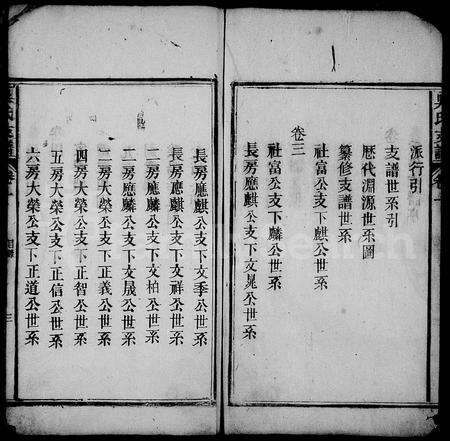 派行引
支譜世系引
歴代淵源世系圖
纂修支譜世系
社富公支下麒公世系
卷三
社富公支下麟公世系
長房應麒公支下文晁公世系
長房應麒公支下文季公世系
長房應麒公支下文祥公世系
二房應麟公支下文柏公世系
二房應麟公支下文晟公世系
三房大榮公支下正義公世系
四房大榮公支下正智公世系
五房大榮公支下正信公世系
六房大榮公支下正道公世系
三